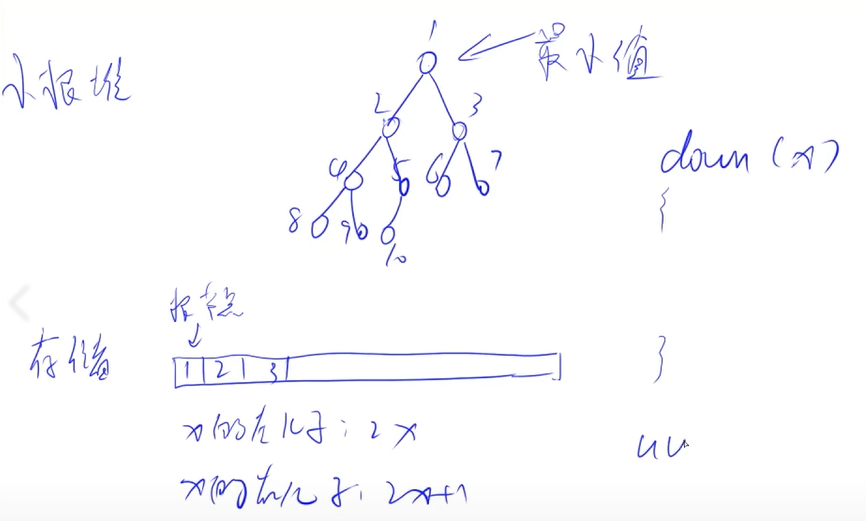 小根堆
最小值
1
2 3
4 5 6 7
8 9 10
down(x)
{
}
根节点
存储
1 2 3
x的左儿子：2x
x的右儿子：2x+1